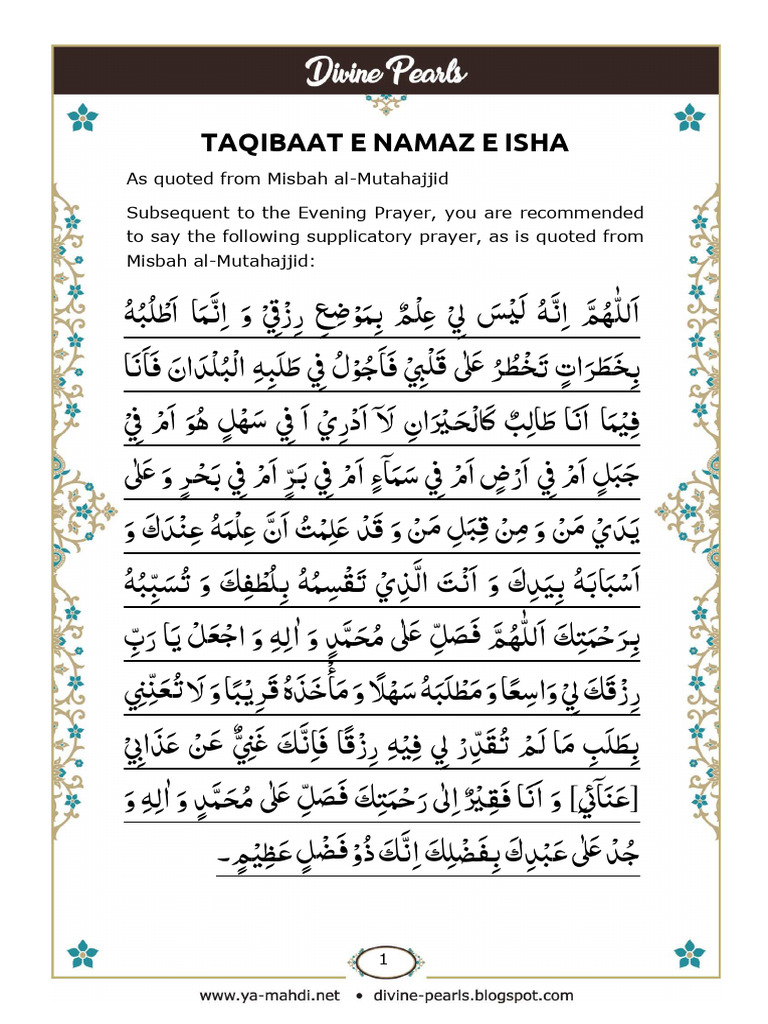 Divine Pearls
TAQIBAAT E NAMAZ E ISHA
As quoted from Misbah al-Mutahajjid
Subsequent to the Evening Prayer, you are recommended
to say the following supplicatory prayer, as is quoted from
Misbah al-Mutahajjid:
اَللّٰهُمَّ اِنَّهُ لَيْسَ لِيْ عِلْمٌ بِمَوْضِعِ رِزْقِيْ وَ اِنَّمَا اَطْلُبُهُ
بِخَطَرَاتٍ تَخْطُرُ عَلٰى قَلْبِيْ فَاَجُوْلُ فِيْ طَلَبِهِ الْبُلْدَانَ فَاَنَا
فِيْمَا اَنَا طَالِبٌ كَالْحَيْرَانِ لَآ اَدْرِيْ اَ فِيْ سَهْلٍ هُوَ اَمْ فِيْ
جَبَلٍ اَمْ فِيْ اَرْضٍ اَمْ فِيْ سَمَآءٍ اَمْ فِيْ بَرٍّ اَمْ فِيْ بَحْرٍ وَ عَلٰى
يَدَيْ مَنْ وَ مِنْ قِبَلِ مَنْ وَ قَدْ عَلِمْتُ اَنَّ عِلْمَهُ عِنْدَكَ وَ
اَسْبَابَهُ بِيَدِكَ وَ اَنْتَ الَّذِيْ تَقْسِمُهُ بِلُطْفِكَ وَ تُسَبِّبُهُ
بِرَحْمَتِكَ اَللّٰهُمَّ فَصَلِّ عَلٰى مُحَمَّدٍ وَ اٰلِهِ وَ اجْعَلْ يَا رَبِّ
رِزْقَكَ لِيْ وَاسِعًا وَ مَطْلَبَهُ سَهْلًا وَ مَأْخَذَهُ قَرِيْبًا وَ لَا تُعَنِّنِيْ
بِطَلَبِ مَا لَمْ تُقَدِّرْ لِي فِيْهِ رِزْقًا فَاِنَّكَ غَنِيٌّ عَنْ عَذَابِيْ
[عَنَآئِيْ] وَ اَنَا فَقِيْرٌ اِلٰى رَحْمَتِكَ فَصَلِّ عَلٰى مُحَمَّدٍ وَ اٰلِهِ وَ
جُدْ عَلٰى عَبْدِكَ بِفَضْلِكَ اِنَّكَ ذُوْ فَضْلٍ عَظِيْمٍ۔
1
www.ya-mahdi.net • divine-pearls.blogspot.com